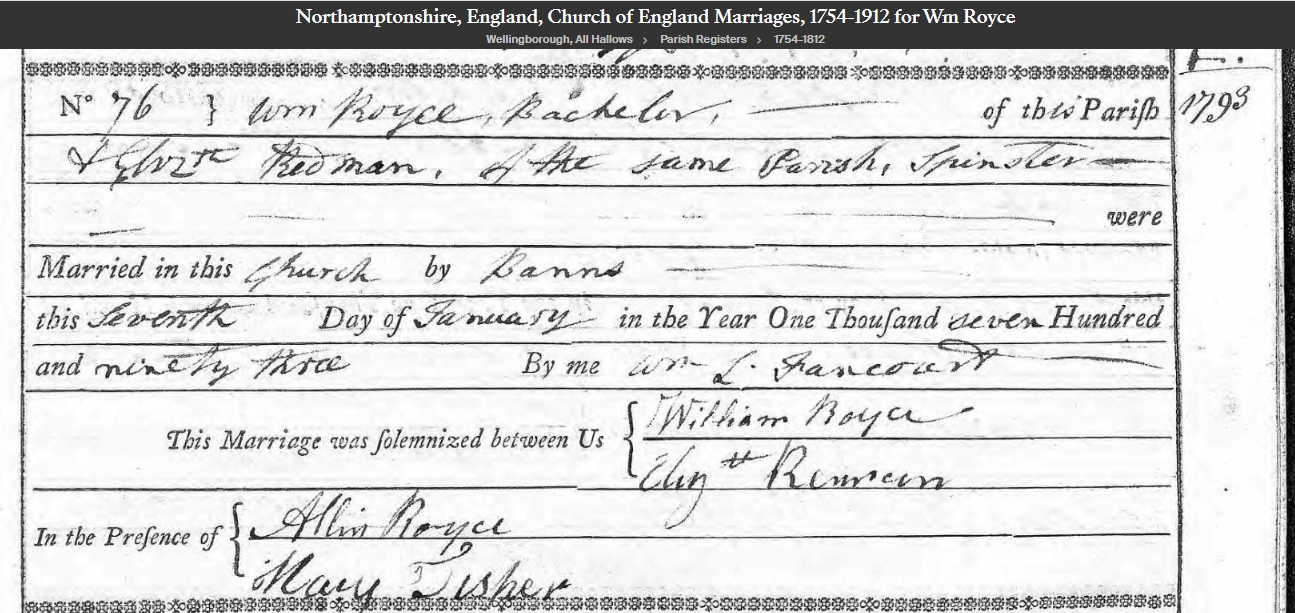 Northamptonshire, England, Church of England Marriages, 1754-1912 for Wm Royce
Wellingborough, All Hallows › Parish Registers › 1754-1812
1793
N° 76 } Wm Royce, Bachelor, of this Pariſh
& Elizth Redman, of the same Parish, Spinster
were
Married in this Church by Banns
this Seventh Day of January in the Year One Thouſand seven Hundred
and ninety three By me Wm L. Fancourt
This Marriage was ſolemnized between Us { William Royce
Elizth
In the Preſence of { Allin Royce
Mary Fisher